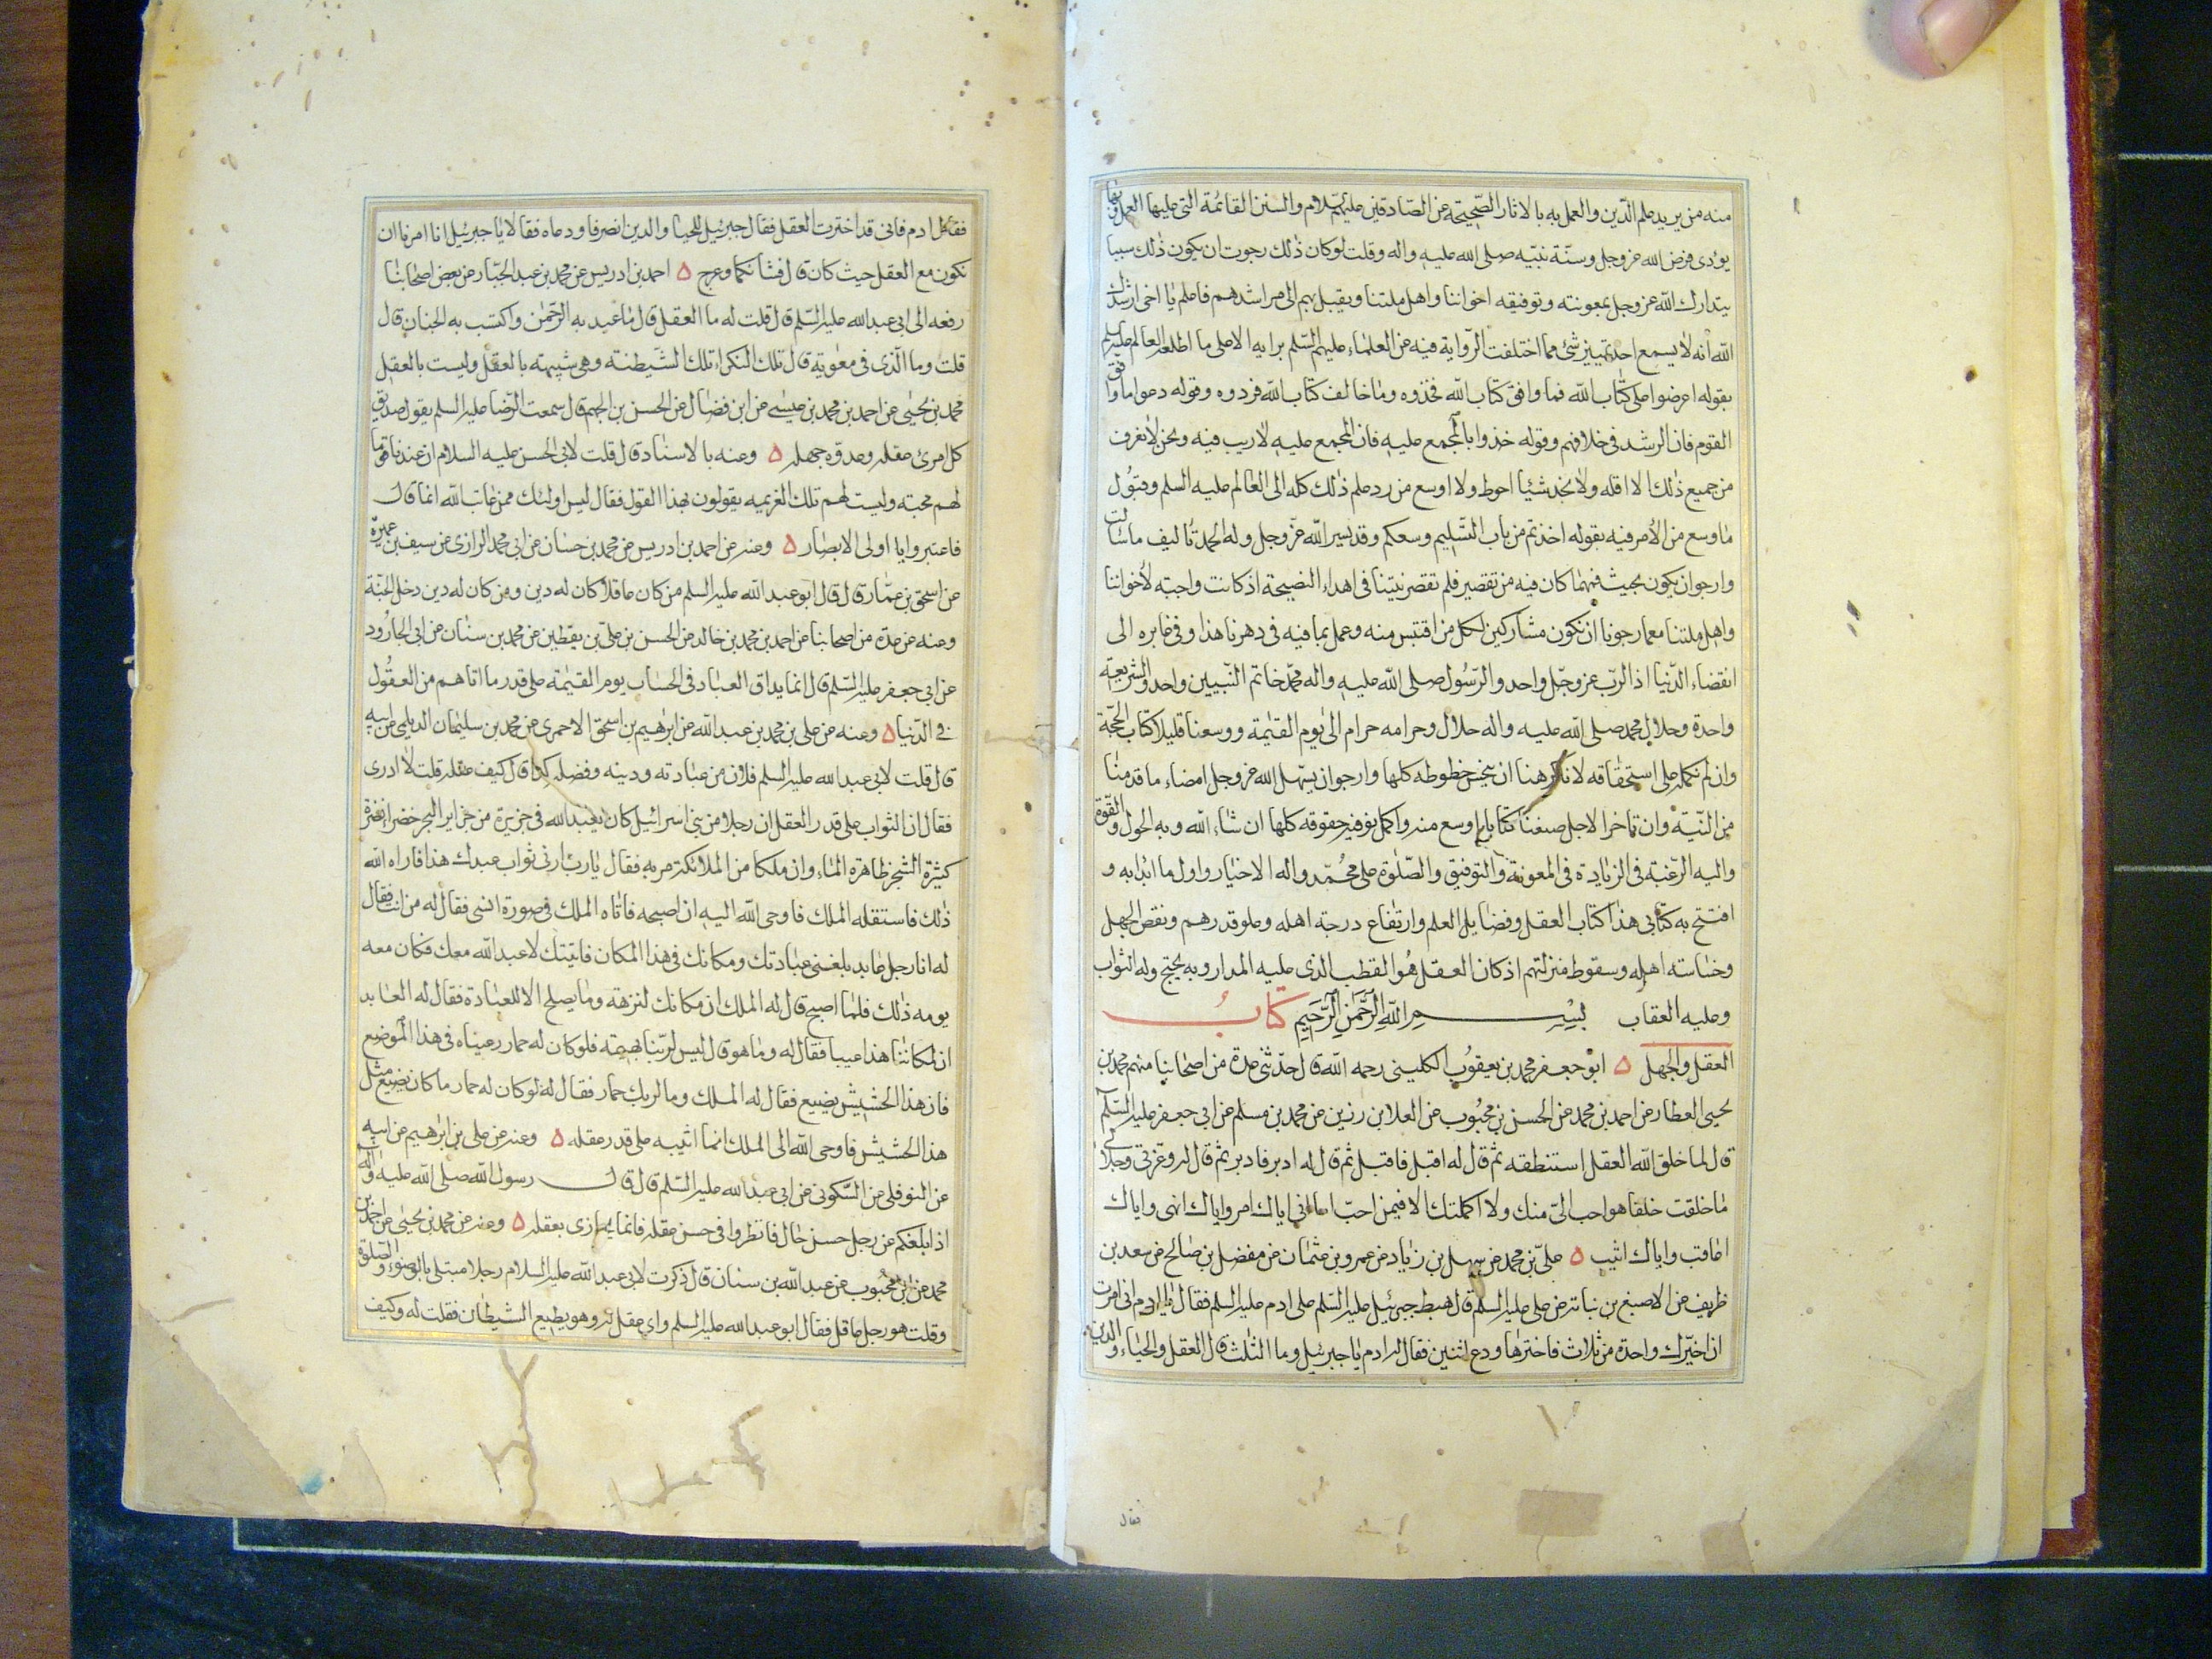 منه من يريد علم الدّين والعمل به بالاثار الصّحيحة عن الصّادقين عليهم السّلام والسنن القائمة التى عليها العمل وبها
يؤدى فرض الله عز وجل وسنّة نبيّه صلى الله عليه واله وقلت لو كان ذٰلك رجوت ان يكون ذٰلك سببا
يتدارك اللّٰه عز وجل بمعونته وتوفيقه اخواننا واهل ملتنا ويقبل بهم الى مراشدهم فاعلم يا اخى ارشدك
اللّٰه انه لا يسع احد تمييز شئ مما اختلفت الرّواية فيه عن العلماء عليهم السّلم برايه الا على ما اطلقه العالم عليه السلم
بقوله اعرضوا على كتاب اللّٰه فما وافق كتاب اللّٰه فخذوه وما خالف كتاب اللّٰه فردوه وقوله دعوا ما وافق
القوم فان الرشد فى خلافهم وقوله خذوا بالمجمع عليه فان المجمع عليه لا ريب فيه ونحن لا نعرف
من جميع ذٰلك الا اقله ولا نجد شئيا احوط ولا اوسع من رد علم ذٰلك كله الى العالم عليه السلم وقبول
ما وسع من الأمر فيه بقوله اخذتم من باب التّسليم وسعكم وقد يسر اللّٰه عز وجل وله الحمد تاليف ما سالت
وارجو ان يكون بحيث فمهما كان فيه من تقصير فلم تقصر نيتنا فى اهداء النصيحة اذ كانت واجبة لأخواننا
واهل ملتنا مع ما رجونا ان نكون مشاركين لكل من اقتبس منه وعمل بما فيه فى دهرنا هذا وفى غابره الى
انقضاء الدّنيا اذ الربّ عز وجلّ واحد والرّسول صلى اللّٰه عليه واله محمّد خاتم النّبيين واحد والشريعة
واحدة وحلال محمد صلى اللّٰه عليه واله حلال وحرامه حرام الى يوم القيٰمة ووسعنا قليلا كتاب الحجّة
وان لم نكمله على استحقاقه لانا كرهنا ان نبخس حظوظه كلها وارجو ان يسهّل اللّٰه عز وجل امضاء ما قدمنا
من النّيّة وان تاخر الاجل صنعنا كتابا اوسع منه واكمل نوفيه حقوقه كلها ان شاء اللّٰه وبه الحول والقوّة
واليه الرّغبة فى الزيادة فى المعونة والتوفيق والصّلوٰة على محمّد واله الاخيار واول ما ابدا به و
افتتح به كتابى هذا كتاب العقل وفضايل العلم وارتفاع درجة اهله وعلو قدرهم ونقص الجهل
وخساسة اهله وسقوط منزلتهم اذ كان العقل هو القطب الذى عليه المدار وبه يحتج وله الثواب
وعليه العقاب بسم اللّٰه الرّحمٰن الرّحيم كتاب
العقل والجهل ۵ ابو جعفر محمد بن يعقوب الكلينى رحمه اللّٰه قال حدّثنى عدة من اصحابنا منهم محمد بن
يحيى العطار عن احمد بن محمد عن الحسن بن محبوب عن العلا بن رزين عن محمد بن مسلم عن ابى جعفر عليه السّلم
قال لما خلق اللّٰه العقل استنطقه ثم قال له اقبل فاقبل ثم قال له ادبر فادبر ثم قال له وعزتى وجلالى
ما خلقت خلقا هو احب الىّ منك ولا اكملتك الا فيمن احبّ اما انى اياك امر واياك انهى واياك
اعاقب واياك اثيب ۵ علىّ بن محمد عن سهل بن زياد عن عمرو بن عثمان عن مفضل بن صالح عن سعد بن
ظريف عن الاصبغ بن نباتة عن على عليه السلم قال هبط جبرئيل عليه السّلم على ادم عليه السلم فقال يا ادم انى امرت
ان اخيّرك واحدة من ثلاث فاخترها ودع اثنين فقال له ادم يا جبرئيل وما الثلث قال العقل والحياء والدين
فقال
فقال ادم فانى قد اخترت العقل فقال جبرئيل للحيا والدين انصرفا ودعاه فقالا يا جبرئيل انا امرنا ان
نكون مع العقل حيث كان قال فشانكما وعرج ۵ احمد بن ادريس عن محمد بن عبد الجبّار عن بعض اصحابنا
رفعه الى ابى عبد اللّٰه عليه السّلم قال قلت له ما العقل قال ما عبد به الرّحمٰن واكتسب به الجنان قال
قلت وما الّذى فى معوية قال تلك النكراء تلك الشّيطنة وهى شبيهة بالعقل وليست بالعقل
محمد بن يحيى عن احمد بن محمد بن عيسى عن ابن فضال عن الحسن بن الجهم قال سمعت الرّضا عليه السلم يقول صديق
كل امرئ عقله وعدوه جهله ۵ وعنه بالاسناد قال قلت لابى الحسن عليه السلام ان عندنا قوما
لهم محبة وليست لهم تلك الغريمه يقولون بهذا القول فقال ليس اولئك ممن عاتب اللّٰه انما قال
فاعتبروا يا اولى الابصار ۵ وعنه عن احمد بن ادريس عن محمد بن حسان عن ابى محمد الرازى عن سيف بن عميرة
عن اسحٰق بن عمّار قال قال ابو عبد اللّٰه عليه السلم من كان عاقلا كان له دين ومن كان له دين دخل الجنّة
وعنه عن عدة من اصحابنا عن احمد بن محمد بن خالد عن الحسن بن علىّ بن يقطين عن محمد بن سنان عن ابى الجارود
عن ابى جعفر عليه السّلم قال انما يداق العباد فى الحساب يوم القيٰمة على قدر ما اتاهم من العقول
فى الدّنيا ۵ وعنه عن على بن محمد بن عبد اللّٰه عن ابرٰهيم بن اسحٰق الاحمرى عن محمد بن سليمان الديلمى عن ابيه
قال قلت لابى عبد اللّٰه عليه السلم فلان من عبادته ودينه وفضله كذا قال كيف عقله قلت لا ادرى
فقال ان الثواب على قدر العقل ان رجلا من بنى اسرائيل كان يعبد اللّٰه فى جزيرة من جزاير البحر خضراء نضرة
كثيرة الشجر ظاهرة الماء وان ملكا من الملائكة مر به فقال يا رب ارنى ثواب عبدك هذا فاراه اللّٰه
ذٰلك فاستقله الملك فاوحى اللّٰه اليه ان اصحبه فاتاه الملك فى صورة انسى فقال له من انت فقال
له انا رجل عابد بلغنى عبادتك ومكانك فى هذا المكان فاتيتك لاعبد اللّٰه معك فكان معه
يومه ذٰلك فلما اصبح قال له الملك ان مكانك لنزهة وما يصلح الا للعبادة فقال له العابد
ان لمكاننا هذا عيبا فقال له وما هو قال ليس لربّنا بهيمة فلو كان له حمار رعيناه فى هذا الموضع
فان هذا الحشيش يضيع فقال له الملك وما لربك حمار فقال له لو كان له حمار ما كان يضيع مثل
هذا الحشيش فاوحى اللّٰه الى الملك انما اثيبه على قدر عقله ۵ وعنه عن على بن ابرٰهيم عن ابيه
عن النوفلى عن السّكونى عن ابى عبد اللّٰه عليه السّلم قال قال رسول اللّٰه صلى اللّٰه عليه واله
اذا بلغكم عن رجل حسن حال فانظروا فى حسن عقله فانما يجازى بعقله ۵ وعنه عن محمد بن يحيى عن احمد بن
محمد عن ابن محبوب عن عبد اللّٰه بن سنان قال ذكرت لابى عبد اللّٰه عليه السلام رجلا مبتلى بالوضوء والصّلوة
وقلت هو رجل عاقل فقال ابو عبد اللّٰه عليه السلم واى عقل له وهو يطيع الشيطان فقلت له وكيف